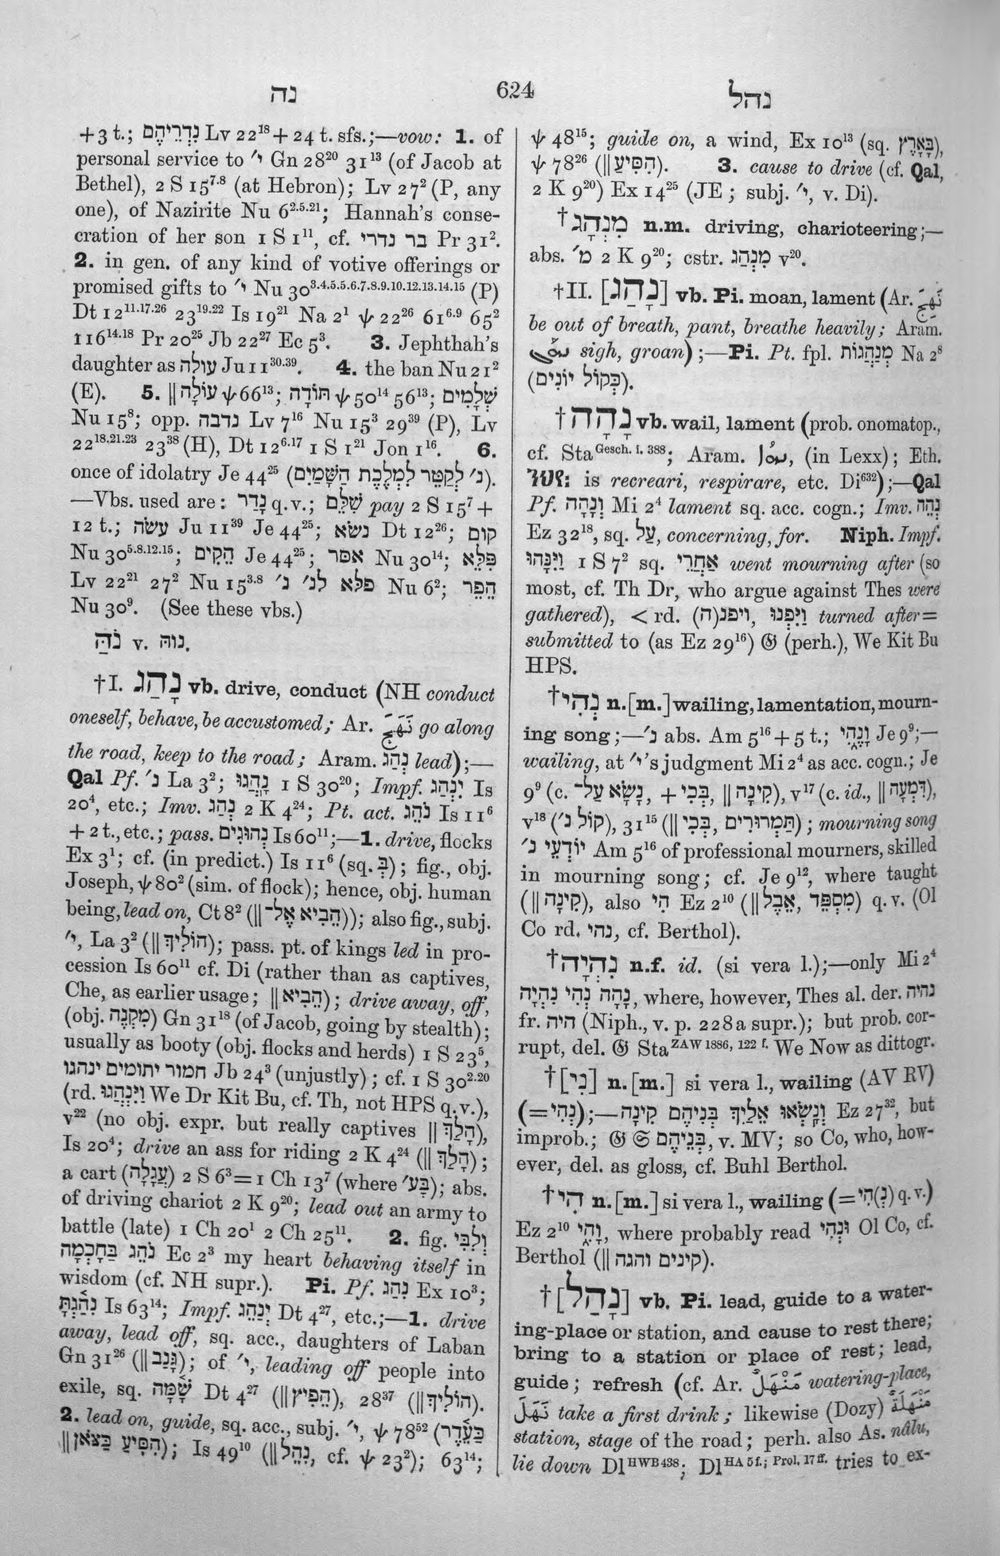 נה
624
נהל
+3 t.; נִדְרֵיהֶם Lv 22¹⁸ + 24 t. sfs.;—vow: 1. of
personal service to ׳י Gn 28²⁰ 31¹³ (of Jacob at
Bethel), 2 S 15⁷·⁸ (at Hebron); Lv 27² (P, any
one), of Nazirite Nu 6²·⁵·²¹; Hannah's conse-
cration of her son 1 S 1¹¹, cf. בר נדרי Pr 31².
2. in gen. of any kind of votive offerings or
promised gifts to ׳י Nu 30³·⁴·⁵·⁵·⁶·⁷·⁸·⁹·¹⁰·¹²·¹³·¹⁴·¹⁵ (P)
Dt 12¹¹·¹⁷·²⁶ 23¹⁹·²² Is 19²¹ Na 2¹ ψ 22²⁶ 61⁶·⁹ 65²
116¹⁴·¹⁸ Pr 20²⁵ Jb 22²⁷ Ec 5³. 3. Jephthah's
daughter as עולה Ju 11³⁰·³⁹. 4. the ban Nu 21²
(E). 5. || עוֹלָה ψ 66¹³; תּוֹדָה ψ 50¹⁴ 56¹³; שְׁלָמִים
Nu 15⁸; opp. נדבה Lv 7¹⁶ Nu 15³ 29³⁹ (P), Lv
22¹⁸·²¹·²³ 23³⁸ (H), Dt 12⁶·¹⁷ 1 S 1²¹ Jon 1¹⁶. 6.
once of idolatry Je 44²⁵ (נ׳ לְקַטֵּר לִמְלֶכֶת הַשָּׁמַיִם).
—Vbs. used are: נָדַר q.v.; שִׁלַּם pay 2 S 15⁷ +
12 t.; עשׂה Ju 11³⁹ Je 44²⁵; נשׂא Dt 12²⁶; קום
Nu 30⁵·⁸·¹²·¹⁵; הֵקִים Je 44²⁵; אסר Nu 30¹⁴; פִּלֵּא
Lv 22²¹ 27² Nu 15³·⁸ פלא לנ׳ נ׳ Nu 6²; הֵפֵר
Nu 30⁹. (See these vbs.)
נֹהַּ v. נוה.
†I. נָהַג vb. drive, conduct (NH conduct
oneself, behave, be accustomed; Ar. نَهَجَ go along
the road, keep to the road; Aram. נְהַג lead);—
Qal Pf. ׳נ La 3²; נָהֲגוּ 1 S 30²⁰; Impf. יִנְהַג Is
20⁴, etc.; Imv. נְהַג 2 K 4²⁴; Pt. act. נֹהֵג Is 11⁶
+ 2 t., etc.; pass. נְהוּגִים Is 60¹¹;—1. drive, flocks
Ex 3¹; cf. (in predict.) Is 11⁶ (sq. בְּ); fig., obj.
Joseph, ψ 80² (sim. of flock); hence, obj. human
being, lead on, Ct 8² (|| הֵבִיא אֶל־); also fig., subj.
׳י, La 3² (|| הוֹלִיךְ); pass. pt. of kings led in pro-
cession Is 60¹¹ cf. Di (rather than as captives,
Che, as earlier usage; || הֵבִיא); drive away, off,
(obj. מִקְנֶה) Gn 31¹⁸ (of Jacob, going by stealth);
usually as booty (obj. flocks and herds) 1 S 23⁵,
חמור יתומים ינהגו Jb 24³ (unjustly); cf. 1 S 30²·²⁰
(rd. וַיִּנְהֲגוּ We Dr Kit Bu, cf. Th, not HPS q.v.),
v²² (no obj. expr. but really captives || הָלַךְ),
Is 20⁴; drive an ass for riding 2 K 4²⁴ (|| הָלַךְ);
a cart (עֲגָלָה) 2 S 6³ = 1 Ch 13⁷ (where בָּע׳); abs.
of driving chariot 2 K 9²⁰; lead out an army to
battle (late) 1 Ch 20¹ 2 Ch 25¹¹. 2. fig. וְלִבִּי
נֹהֵג בַּחָכְמָה Ec 2³ my heart behaving itself in
wisdom (cf. NH supr.). Pi. Pf. נִהַג Ex 10³;
נִהַגְתָּ Is 63¹⁴; Impf. יְנַהֵג Dt 4²⁷, etc.;—1. drive
away, lead off, sq. acc., daughters of Laban
Gn 31²⁶ (|| גָּנַב); of ׳י, leading off people into
exile, sq. שָׁמָּה Dt 4²⁷ (|| הֵפִיץ), 28³⁷ (|| הוֹלִיךְ).
2. lead on, guide, sq. acc., subj. ׳י, ψ 78⁵² (כַּעֵדֶר
|| הִסִּיעַ כַּצֹּאן); Is 49¹⁰ (|| נִהֵל, cf. ψ 23²); 63¹⁴;
ψ 48¹⁵; guide on, a wind, Ex 10¹³ (sq. בָּאָרֶץ),
ψ 78²⁶ (|| הִסִּיעַ). 3. cause to drive (cf. Qal,
2 K 9²⁰) Ex 14²⁵ (JE; subj. ׳י, v. Di).
†מִנְהָג n.m. driving, charioteering;—
abs. ׳מ 2 K 9²⁰; cstr. מִנְהַג v²⁰.
†II. [נָהַג] vb. Pi. moan, lament (Ar. نَهَجَ
be out of breath, pant, breathe heavily; Aram.
sigh, groan);—Pi. Pt. fpl. מְנַהֲגוֹת Na 2⁸
(כְּקוֹל יוֹנִים).
†נָהָה vb. wail, lament (prob. onomatop.,
cf. Sta Gesch. I. 388; Aram. (in Lexx); Eth.
is recreari, respirare, etc. Di⁶³²);—Qal
Pf. וְנָהָה Mi 2⁴ lament sq. acc. cogn.; Imv. נְהֵה
Ez 32¹⁸, sq. עַל, concerning, for. Niph. Impf.
וַיִּנָּהוּ 1 S 7² sq. אַחֲרֵי went mourning after (so
most, cf. Th Dr, who argue against Thes were
gathered), < rd. וַיִּפְנוּ, ויפנ(ה) turned after=
submitted to (as Ez 29¹⁶) 𝔊 (perh.), We Kit Bu
HPS.
†נְהִי n.[m.] wailing, lamentation, mourn-
ing song;—׳נ abs. Am 5¹⁶ + 5 t.; וָנֶהִי Je 9⁹;—
wailing, at ׳י's judgment Mi 2⁴ as acc. cogn.; Je
9⁹ (c. נָשָׂא עַל־, + בְּכִי, || קִינָה), v¹⁷ (c. id., || דִּמְעָה),
v¹⁸ (קוֹל נ׳), 31¹⁵ (|| בְּכִי, תַּמְרוּרִים); mourning song
יוֹדְעֵי נ׳ Am 5¹⁶ of professional mourners, skilled
in mourning song; cf. Je 9¹², where taught
(|| קִינָה), also הִי Ez 2¹⁰ (|| מִסְפֵּד, אֵבֶל) q.v. (Ol
Co rd. נהי, cf. Berthol).
†נִהְיָה n.f. id. (si vera l.);—only Mi 2⁴
נָהָה נְהִי נִהְיָה, where, however, Thes al. der. נהיה
fr. היה (Niph., v. p. 228 a supr.); but prob. cor-
rupt, del. 𝔊 Sta ZAW 1886, 122 f. We Now as dittogr.
†[נִי] n.[m.] si vera l., wailing (AV RV)
(=נְהִי);—וְנָשְׂאוּ אֵלַיִךְ בְּנִיהֶם קִינָה Ez 27³², but
improb.; 𝔊 𝔖 בְּנֵיהֶם, v. MV; so Co, who, how-
ever, del. as gloss, cf. Buhl Berthol.
†הִי n.[m.] si vera l., wailing (=(נְ)הִי q.v.)
Ez 2¹⁰ וָהִי, where probably read וּנְהִי Ol Co, cf.
Berthol (|| קינים והגה).
†[נָהַל] vb. Pi. lead, guide to a water-
ing-place or station, and cause to rest there;
bring to a station or place of rest; lead,
guide; refresh (cf. Ar. مَنْهَل watering-place,
نَهَلَ take a first drink; likewise (Dozy) مَنْهَلَة
station, stage of the road; perh. also As. nâlu,
lie down Dl HWB 438; Dl HA 5 f.; Prol. 17 ff. tries to ex-